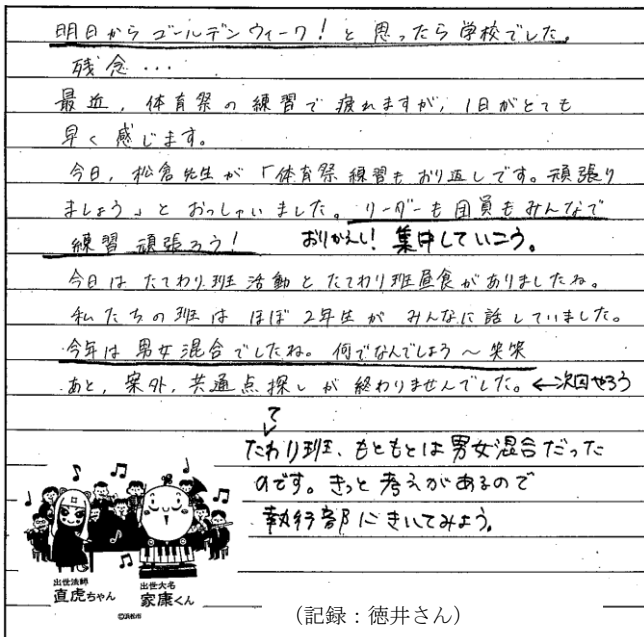 明日からゴールデンウィーク！と思ったら学校でした。
残念…
最近，体育祭の練習で疲れますが，1日がとても
早く感じます。
今日，松倉先生が「体育祭練習もおり返しです。頑張り
ましょう」とおっしゃいました。リーダーも団員もみんなで
練習頑張ろう！
おりかえし！集中していこう。
今日はたてわり班活動とたてわり班昼食がありましたね。
私たちの班はほぼ2年生がみんなに話していました。
今年は男女混合でしたね。何でなんでしょう～笑笑
あと，案外，共通点探しが終わりませんでした。←次回やろう
て
たわり班、もともとは男女混合だった
のです。きっと考えがあるので
執行部にきいてみよう。
出世法師
直虎ちゃん
出世大名
家康くん
©浜松市
（記録：徳井さん）